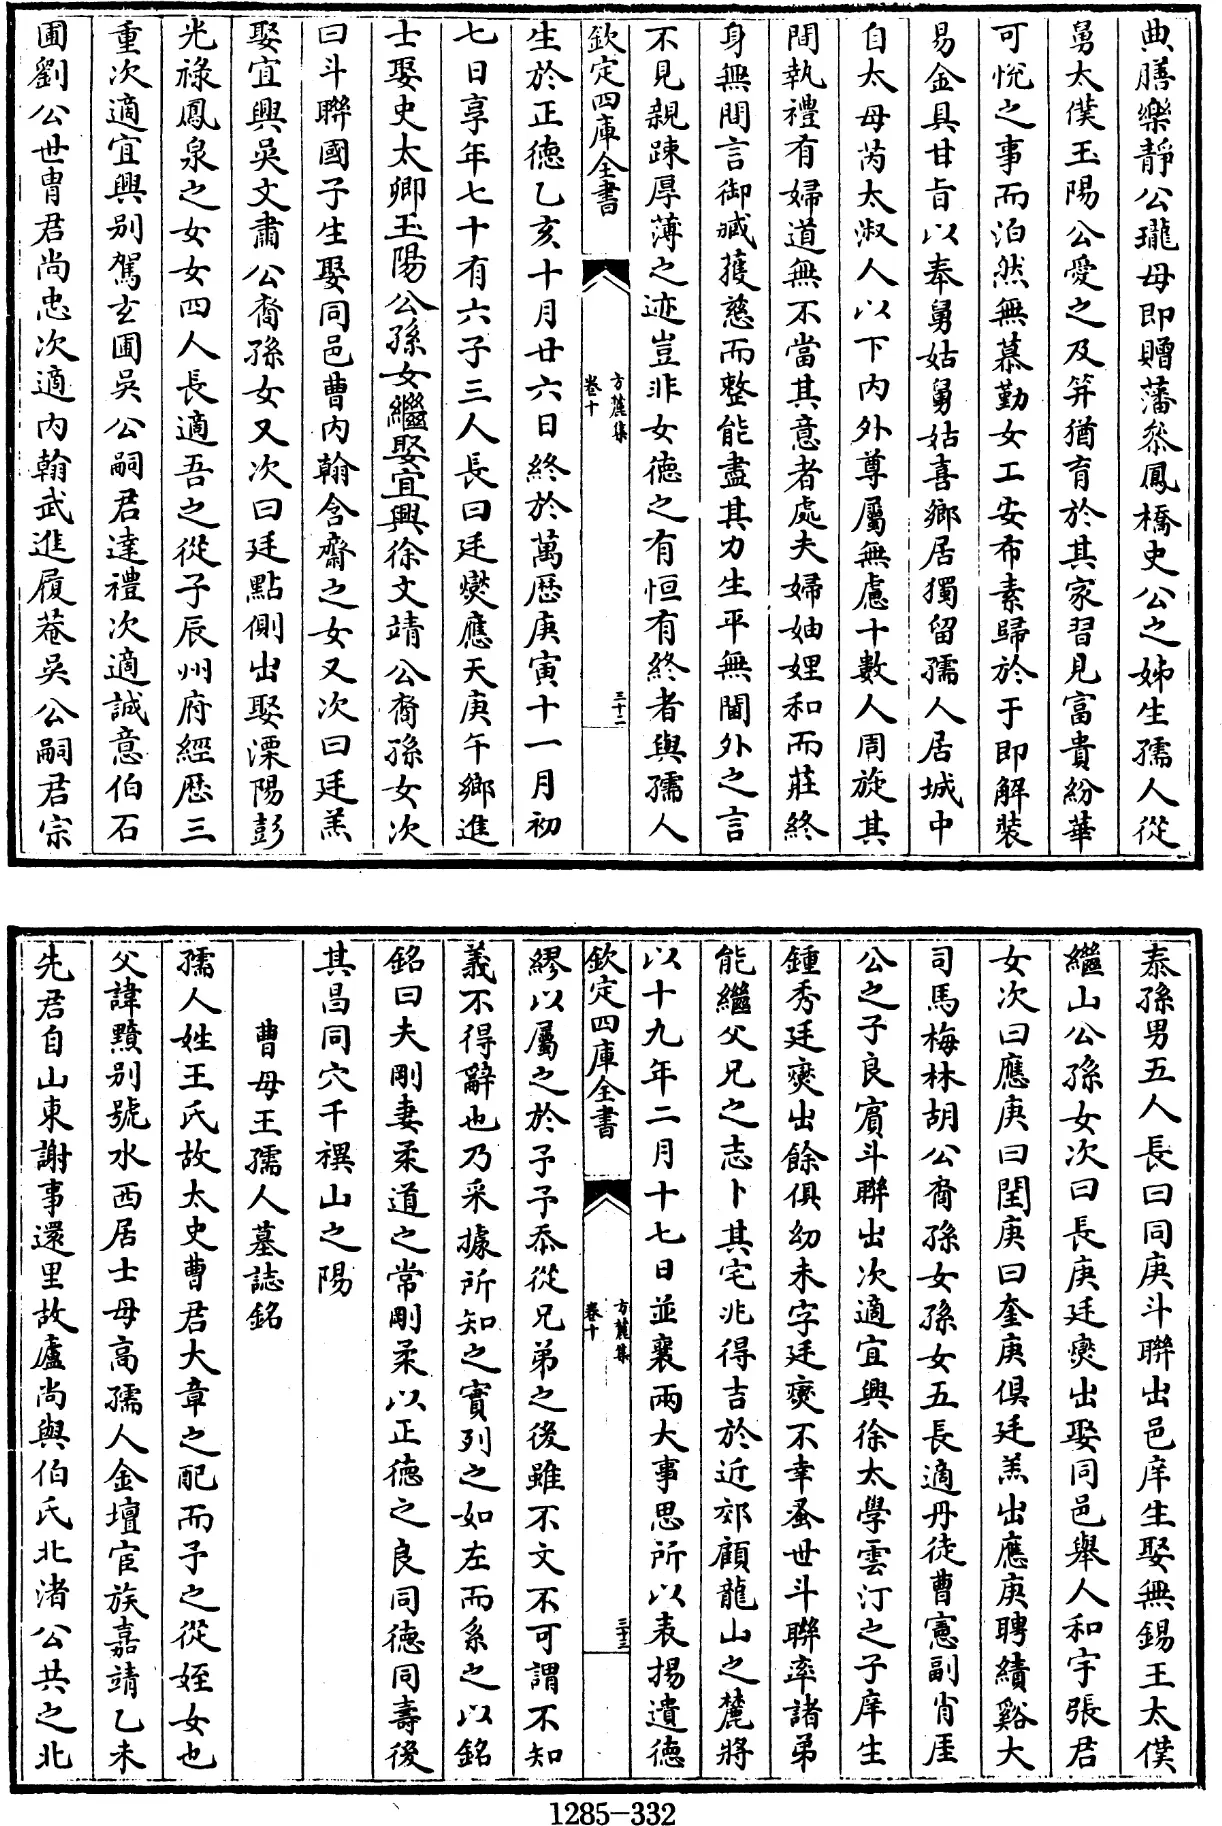 典膳樂靜公瓏母即贈藩叅鳳橋史公之姊生孺人從
舅太僕玉陽公愛之及筓猶育於其家習見富貴紛華
可悅之事而泊然無慕勤女工安布素歸於于即解裝
易金具甘旨以奉舅姑舅姑喜鄉居獨留孺人居城中
自太母芮太淑人以下内外尊屬無慮十數人周旋其
間執禮有婦道無不當其意者處夫婦妯娌和而莊終
身無間言御臧獲慈而整能盡其力生平無閫外之言
不見親踈厚薄之迹豈非女徳之有恒有終者與孺人
欽定四庫全書
方麓集
卷十
三十二
生於正徳乙亥十月廿六日終於萬厯庚寅十一月初
七日享年七十有六子三人長曰廷爕應天庚午鄉進
士娶史太卿玉陽公孫女繼娶宜興徐文靖公裔孫女次
曰斗聯國子生娶同邑曹内翰含齋之女又次曰廷羔
娶宜興吳文肅公裔孫女又次曰廷點側出娶溧陽彭
光祿鳳泉之女女四人長適吾之從子辰州府經厯三
重次適宜興别駕玄圃吳公嗣君達禮次適誠意伯石
圃劉公世胄君尚忠次適内翰武進履菴吳公嗣君宗
泰孫男五人長曰同庚斗聯出邑庠生娶無錫王太僕
繼山公孫女次曰長庚廷爕出娶同邑舉人和宇張君
女次曰應庚曰閏庚曰奎庚俱廷羔出應庚聘績谿大
司馬梅林胡公裔孫女孫女五長適丹徒曹憲副肖厓
公之子良賔斗聨出次適宜興徐太學雲汀之子庠生
鍾秀廷爕出餘俱幼未字廷爕不幸蚤世斗聯率諸弟
能繼父兄之志卜其宅兆得吉於近郊顧龍山之麓將
以十九年二月十七日並襄兩大事思所以表揚遺徳
欽定四庫全書
方麓集
卷十
三十三
繆以屬之於予予忝從兄弟之後雖不文不可謂不知
義不得辭也乃采據所知之實列之如左而系之以銘
銘曰夫剛妻柔道之常剛柔以正徳之良同徳同壽後
其昌同穴千禩山之陽
曹母王孺人墓誌銘
孺人姓王氏故太史曹君大章之配而予之從姪女也
父諱䵻别號水西居士母高孺人金壇宦族嘉靖乙未
先君自山東謝事還里故廬尚與伯氏北渚公共之北
1285-332